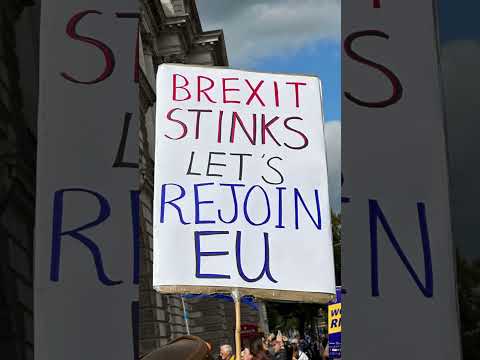 BREXIT
STINKS
LET'S
REJOIN
EU